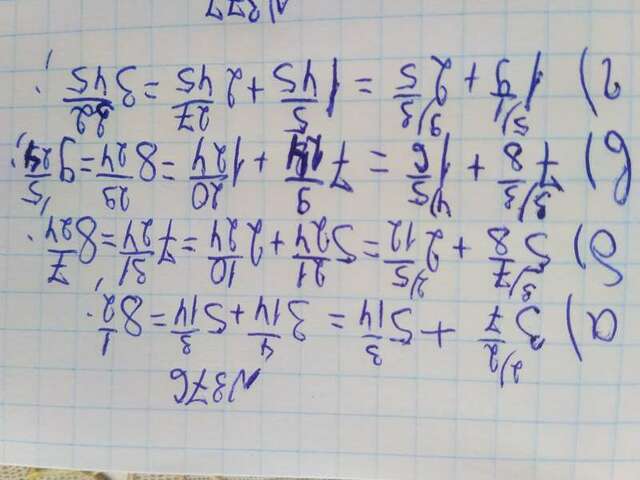 №376
а) 3 ²⁾2/7 + 5 3/14 = 3 4/14 + 5 3/14 = 8 1/2.
б) 5 ³⁾7/8 + 2 ²⁾5/12 = 5 21/24 + 2 10/24 = 7 31/24 = 8 7/24.
в) 7 ³⁾3/8 + 1 ⁴⁾5/6 = 7 9/24 + 1 20/24 = 8 29/24 = 9 5/24;
г) 1 ⁵⁾1/9 + 2 ⁹⁾3/5 = 1 5/45 + 2 27/45 = 3 32/45.
№377